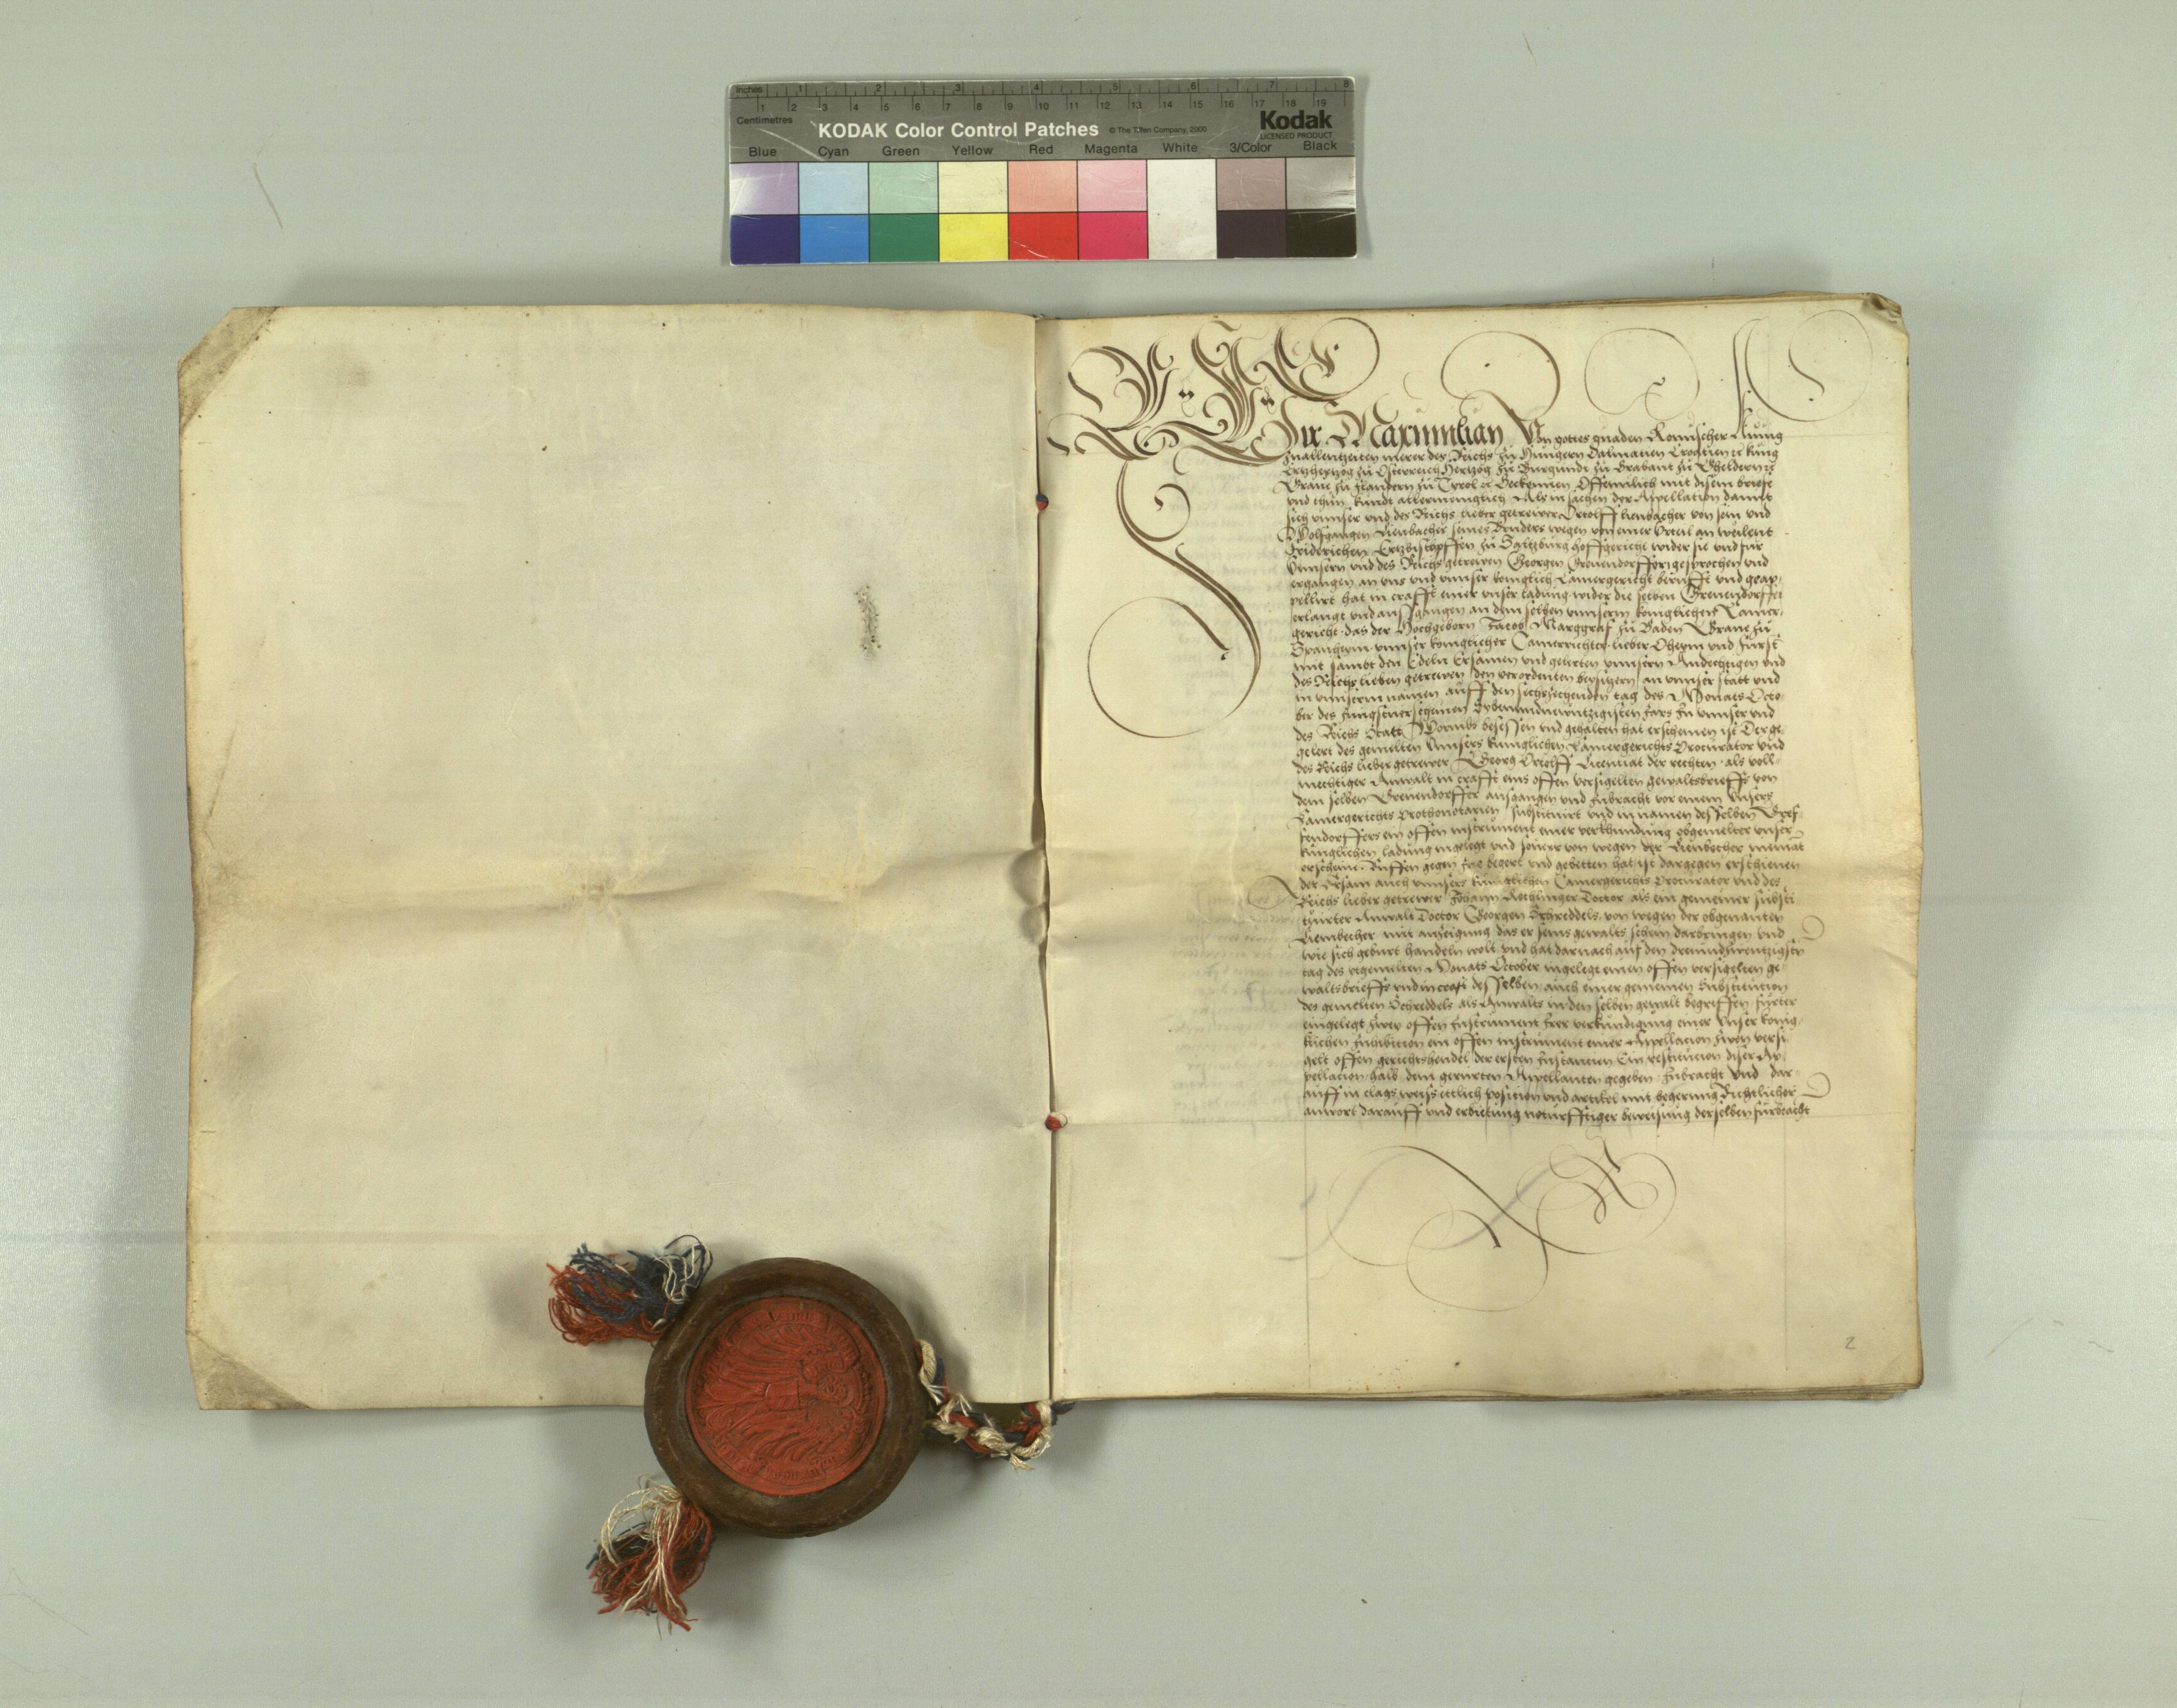 Inches 1 2 3 4 5 6 7 8
1 2 3 4 5 6 7 8 9 10 11 12 13 14 15 16 17 18 19
Centimetres
KODAK Color Control Patches © The Tiffen Company, 2000 Kodak
LICENSED PRODUCT
Blue Cyan Green Yellow Red Magenta White 3/Color Black
Wir Maximilian Von gottes gnaden Romischer Kunig
zuallentzeiten merer des Reichs zu Hungern Dalmatien Croatien ꝛc kung
Ertzhertzog zu Osterreich Hertzog zu Burgundi zu Brabant zu Gheldern ꝛc
Graue zu Flandern zu Tyrol ꝛc Bekennen Offennlich mit disem briefe
vnd thun kundt allermeniglich Als in sachen der Appellation damit
sich vnnser vnd des Reichs lieber getrewer Ortolff lienbacher von sein vnd
Wolfganngen Lienbacher seines Bruders wegen von einer Vrteil an weilent
Friderichen Ertzbischoffen zu Saltzburg hoffgericht wider sie vnd fur
Vnnsern vnd des Reichs getrewen Georgen gesprochen vnd
ergangen an vns vnd vnnser koniglich Camergericht berufft vnd geap
pellirt hat in crafft einer vnser ladung wider die selben
erlangt vnd aussgangen an dem selben vnnserm koniglichen Camer
gericht das der Hochgeborn Jacob Marggraf zu Baden Graue zu
Spanheim vnnser koniglicher Camerrichter lieber Oheym vnd Furst
mit sambt den Edeln Ersamen vnd gelerten vnnsern Andechtigen vnd
des Reichs lieben getrewen den verordenten beysitzern an vnnser statt vnd
in vnnserm namen auff den sechszehenden tag des Monats Octo
ber des Jungstuerschinen Sybenundnewntzigisten Jars In vnnser vnd
des Reichs Statt Wormbs besessen vnd gehalten hat erschinen ist Der ge
gelert des gemelten vnnsers kuniglichen Camergerichts Procurator vnd
des Reichs lieber getrewer Georg Ortolff Licentiat der rechten als voll
mechtiger Anwalt in crafft eins offen versigelten gewaltsbrieffs von
dem selben aussgangen vnd furbracht vor einem vnsers
Camergerichts Prothonotarien substituirt vnd in namen desselben
ein offen instrument einer verkhundung obgemelter vnser
kuniglichen ladung ingelegt vnd souerr von wegen der Lienbecher niemat
erscheine Ruffen gegen Ine begert vnd gebetten hat ist dargegen erschienen
der Ersam auch vnnsers kuniglichen Camergerichts Procurator vnd des
Reichs lieber getrewer Johann Rechlinger Doctor als ein gemeiner substi
tuirter Anwalt Doctor Georgen Schreddels von wegen der obgenanten
Lienbecher mit anzeigung das er seins gewalts schein darbringen vnd
wie sich geburt handeln wolt vnd hat darnach auf den dreiundzwentzigsten
tag des vtgemelten Monats October ingelegt einen offen versigelten ge
waltsbrieffs vnd in craft desselben auch einer gemeinen Substitucion
des gemelten Schreddels als Anwalts in den selben gewalt begriffen furter
eingelegt zwey offen Instrument Irer verkundigung einer vnser konig
lichen Inhibition ein offen instrument einer Appellacion zwen versi
gelt offen gerichtshendel der ersten Instantien Ein restitucion diser Ap
pellacion halb dem gerurten Appellanten gegeben furbracht Vnd dar
auff in clags weiss etlich position vnd artikel mit begerung Richtlicher
antwort darauff vnd erbietung notturfftiger beweisung derselben furbracht
2